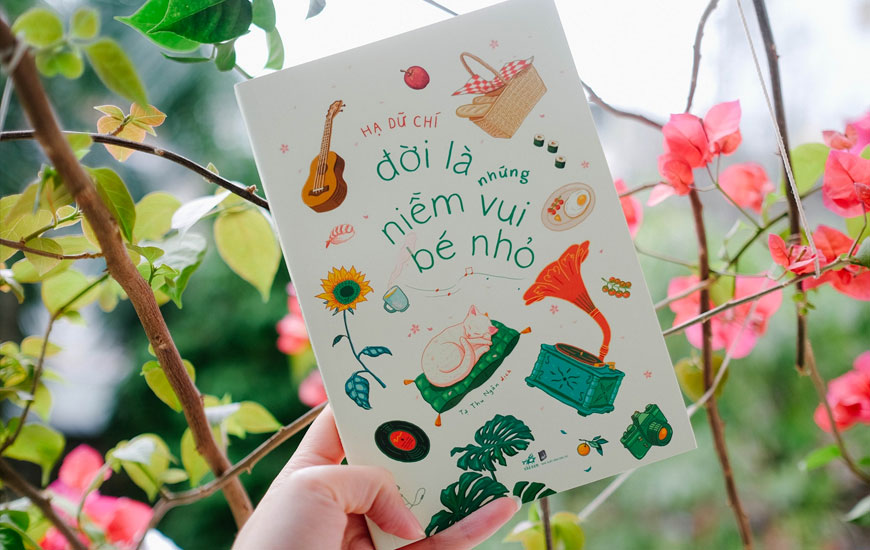 HẠ DỮ CHÍ
đời là
những
niềm vui
bé nhỏ
Tạ Thu Ngân dịch